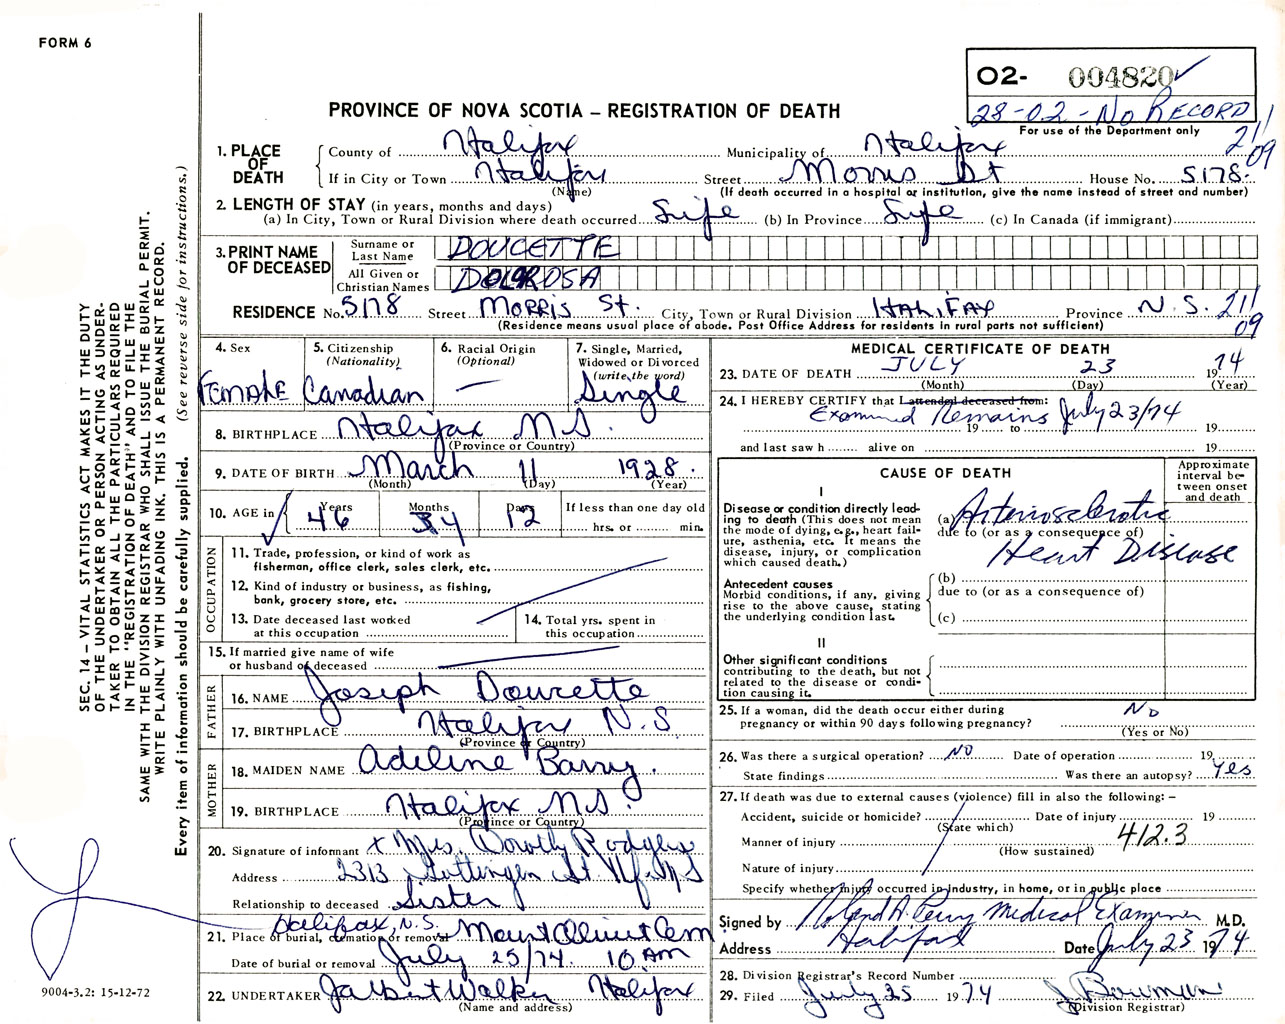 FORM 6
O2- 004820 ✓
28-02-No RECORD
For use of the Department only
PROVINCE OF NOVA SCOTIA – REGISTRATION OF DEATH
211
09
1. PLACE OF DEATH
County of Halifax Municipality of Halifax
If in City or Town Halifax Street Morris St House No. 5178.
(Name) (If death occurred in a hospital or institution, give the name instead of street and number)
2. LENGTH OF STAY (in years, months and days)
(a) In City, Town or Rural Division where death occurred Life (b) In Province Life (c) In Canada (if immigrant)
3. PRINT NAME OF DECEASED
Surname or Last Name DOUCETTE
All Given or Christian Names DOLOROSA
RESIDENCE No. 5178 Street MORRIS St. City, Town or Rural Division HALIFAX Province N.S. 211
09
(Residence means usual place of abode. Post Office Address for residents in rural parts not sufficient)
4. Sex
FEMALE
5. Citizenship (Nationality)
Canadian
6. Racial Origin (Optional)
—
7. Single, Married, Widowed or Divorced (write the word)
Single
8. BIRTHPLACE Halifax N.S.
(Province or Country)
9. DATE OF BIRTH March 11 1928.
(Month) (Day) (Year)
10. AGE in Years Months Days If less than one day old
46 4 12 hrs. or min.
OCCUPATION
11. Trade, profession, or kind of work as fisherman, office clerk, sales clerk, etc.
12. Kind of industry or business, as fishing, bank, grocery store, etc.
13. Date deceased last worked at this occupation
14. Total yrs. spent in this occupation
15. If married give name of wife or husband of deceased
FATHER
16. NAME Joseph Doucette
17. BIRTHPLACE Halifax N.S.
(Province or Country)
MOTHER
18. MAIDEN NAME Adeline Barry.
19. BIRTHPLACE Halifax N.S.
(Province or Country)
20. Signature of informant x Mrs. Dorothy Rodgers
Address 2313 Gottingen St Hfx N S
Relationship to deceased Sister
Halifax, N.S.
21. Place of burial, cremation or removal Mount Olivet Cem
Date of burial or removal July 25/74. 10 AM
22. UNDERTAKER J Albert Walker Halifax
(Name and address)
MEDICAL CERTIFICATE OF DEATH
23. DATE OF DEATH JULY 23 1974
(Month) (Day) (Year)
24. I HEREBY CERTIFY that I attended deceased from:
Examined Remains July 23/74
19 to 19
and last saw h alive on 19
CAUSE OF DEATH
Approximate interval between onset and death
I
Disease or condition directly leading to death (This does not mean the mode of dying, e.g., heart failure, asthenia, etc. It means the disease, injury, or complication which caused death.)
(a) Arteriosclerotic
due to (or as a consequence of)
Heart Disease
Antecedent causes
Morbid conditions, if any, giving rise to the above cause, stating the underlying condition last.
(b)
due to (or as a consequence of)
(c)
II
Other significant conditions
contributing to the death, but not related to the disease or condition causing it.
25. If a woman, did the death occur either during pregnancy or within 90 days following pregnancy? No
(Yes or No)
26. Was there a surgical operation? NO Date of operation 19
State findings Was there an autopsy? Yes
27. If death was due to external causes (violence) fill in also the following: –
Accident, suicide or homicide? Date of injury 19
(State which)
Manner of injury 412.3
(How sustained)
Nature of injury
Specify whether injury occurred in industry, in home, or in public place
Signed by Roland A. Perry Medical Examiner M.D.
Address Halifax Date July 23 1974
28. Division Registrar's Record Number
29. Filed July 25 1974 J Bowman
(Division Registrar)
SEC. 14 – VITAL STATISTICS ACT MAKES IT THE DUTY
OF THE UNDERTAKER OR PERSON ACTING AS UNDER-
TAKER TO OBTAIN ALL THE PARTICULARS REQUIRED
IN THE "REGISTRATION OF DEATH" AND TO FILE THE
SAME WITH THE DIVISION REGISTRAR WHO SHALL ISSUE THE BURIAL PERMIT.
WRITE PLAINLY WITH UNFADING INK. THIS IS A PERMANENT RECORD.
Every item of information should be carefully supplied. (See reverse side for instructions.)
9004-3.2: 15-12-72